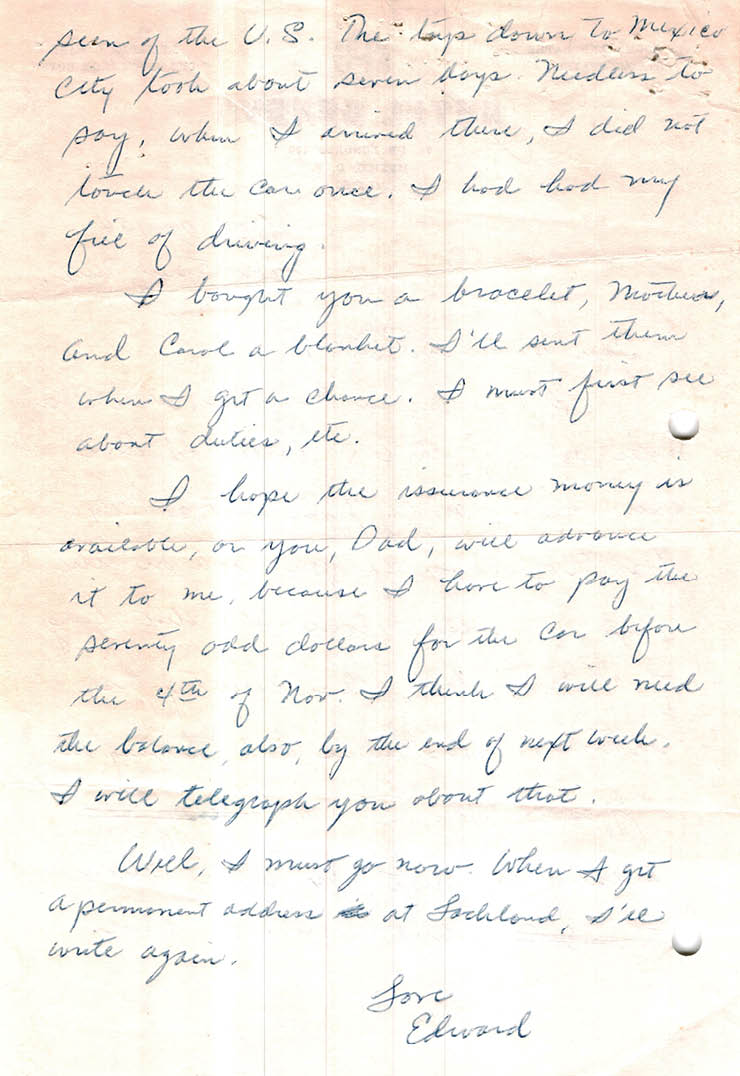 seen of the U.S. The trip down to Mexico
City took about seven days. Needless to
say, when I arrived there, I did not
touch the car once. I had had my
fill of driving.
I bought you a bracelet, Mother,
and Carol a blanket. I'll sent them
when I get a chance. I must first see
about duties, etc.
I hope the issurance money is
available, or you, Dad, will advance
it to me, because I have to pay the
seventy odd dollars for the car before
the 4th of Nov. I think I will need
the balance, also, by the end of next week.
I will telegraph you about that.
Well, I must go now. When I get
a permanent address at Lackland, I'll
write again.
Love
Edward